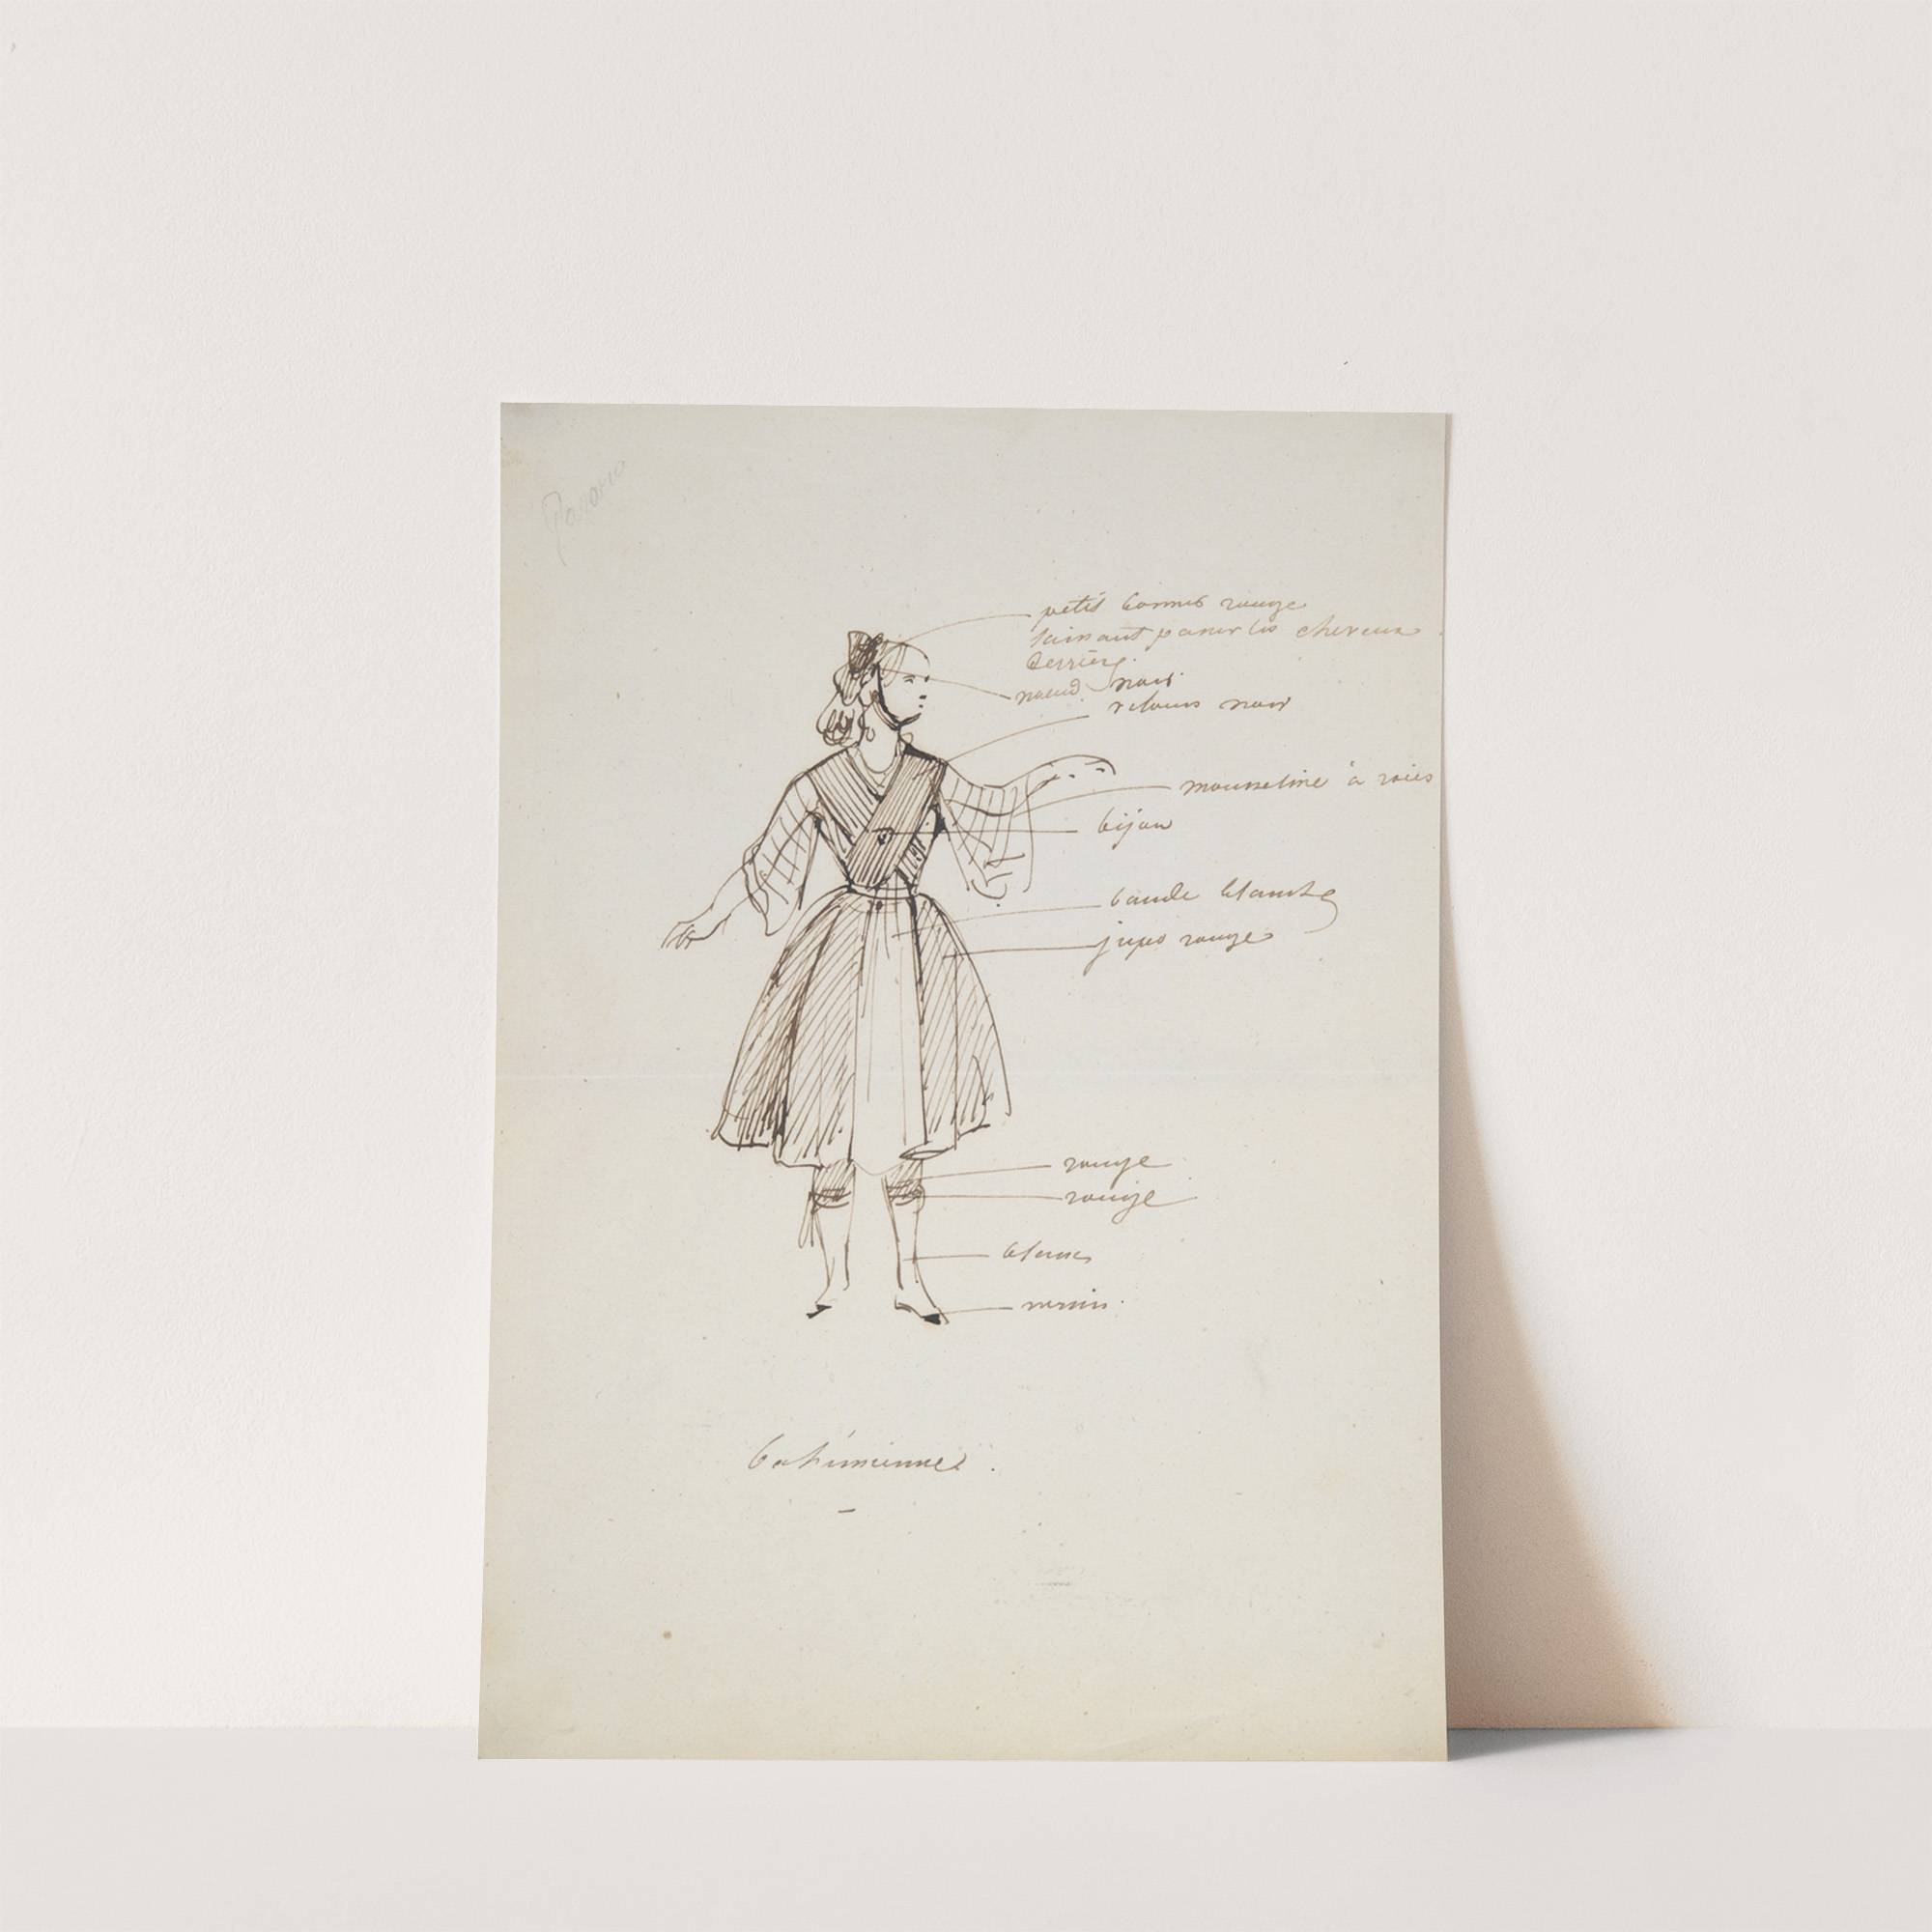 petit bonnet rouge
laissant passer les cheveux
derrière.
nœud noir.
velours noir
mousseline à raies
bijou
bande blanche
jupe rouge
rouge
rouge
blanc
vernis.
bohémienne.